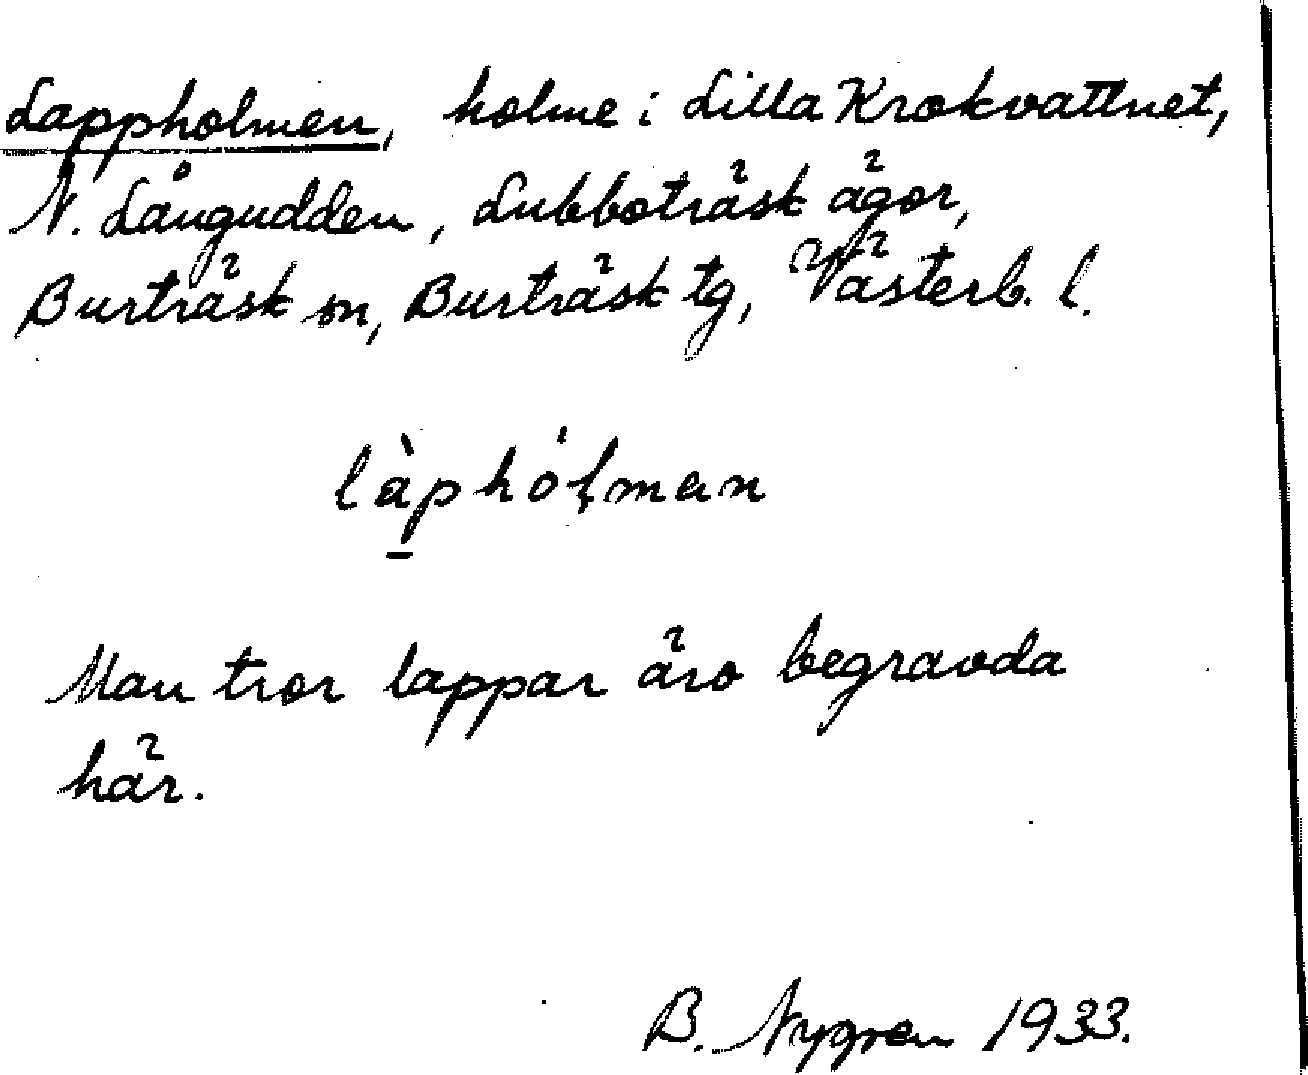 Lappholmen, holme i Lilla Krokvattnet,
N. Långudden, Lubboträsk ägor,
Burträsk sn, Burträsk tg, Västerb. l.
làphólman
Man tror lappar äro begravda
här.
B. Nygren 1933.